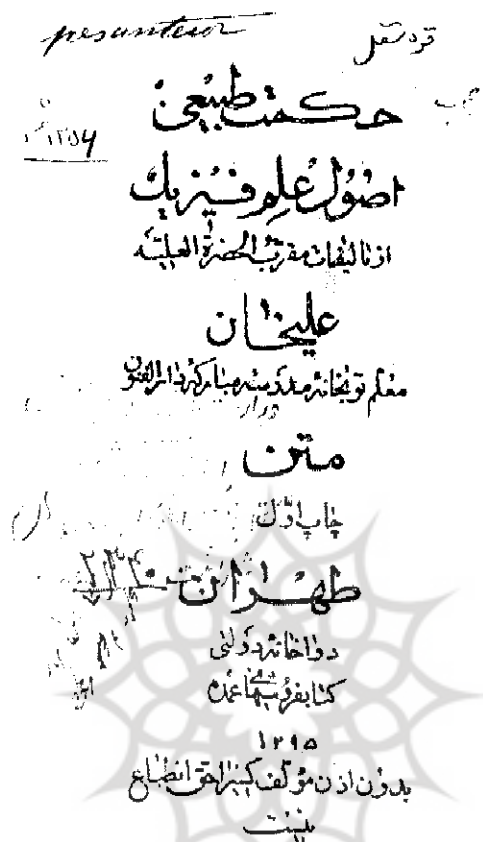 pesanteur
قوه ثقل
حکمت طبیعی
اصول علم فیزیک
از تالیفات مقرب الحضرة العلیه
علیخان
معلم توپخانه مدرسه مبارکه دارالفنون
متن
چاپ اوّل
طهران
دواخانه دولتی
کتابفروشیهای عمده
۱۲۹۵
بدون اذن مؤلف کسیرا حق انطباع
نیست